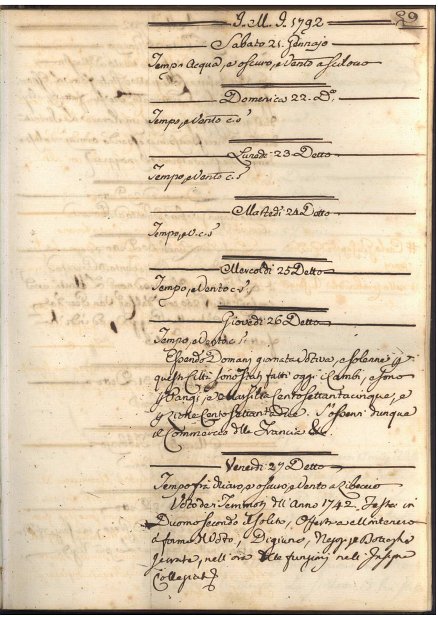 J. M. J. 1792
59
Sabato 21. Gennajo
Tempo Acqua, e oscuro, e Vento a Sciloco
Domenica 22. Do.
Tempo, e Vento c. s.
Lunedi 23 Detto
Tempo, e Vento c. s.
Martedi 24 Detto
Tempo, e V. c. s.
Mercoldi 25 Detto
Tempo, e Vento c. s.
Giovedi 26 Detto
Tempo, e Vento c. s.
Essendo Domani giornata Votiva, e solenne
questa Città sono stati fatti oggi i Cambi, e sono
Parigi, e Marsilia Cento Settantacinque, e
Cento Settantadue. dunque
il Commercio della Francia &c.
Venerdi 27 Detto
Tempo frà chiaro, e oscuro, e Vento a Libeccio
Voto de Terremoti dell Anno 1742. Festa in
Duomo secondo il solito, Offerta
Voto, Digiuno, Negozj, e Botteghe
serrate, nell'ore delle funzioni nell' Insigne
Collegiata